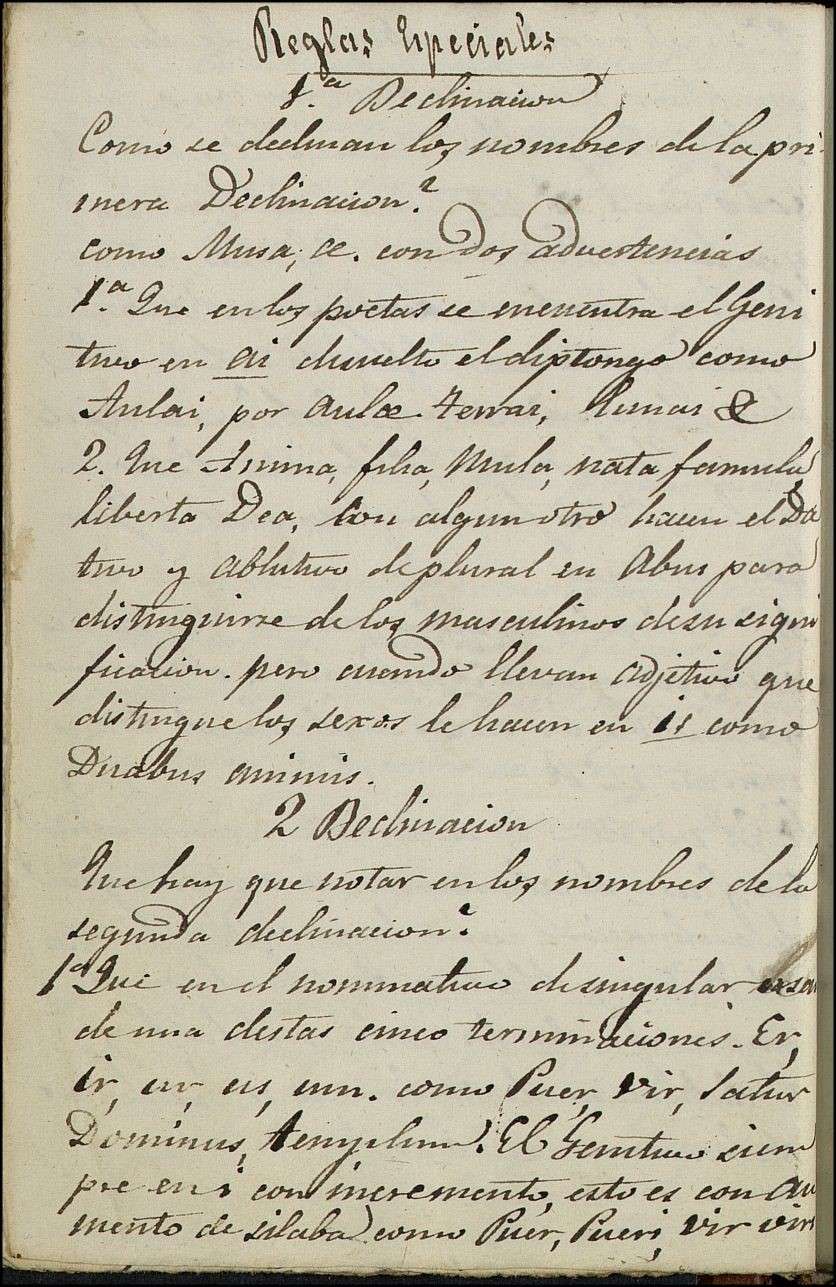 Reglas Speciales
1.ª Declinacion
Como se declinan los nombres de la pri-
mera Declinacion?
como Musa, æ. con dos advertencias
1.ª Que en los poetas se encuentra el Geni
tivo en ai disuelto el diptongo como
Aulai, por aulæ. terrai, &
2. Que Anima, filia, Mula, nata famula,
liberta Dea, con algun otro hacen el Da
tivo y ablativo de plural en Abus para
distinguirse de los masculinos de su signi
ficacion. pero cuando llevan adjetivo que
distingue los sexos le hacen en is como
Duabus animis.
2 Declinacion
Que hay que notar en los nombres de la
segunda declinacion?
1.ª Que en el nominativo de singular
de una destas cinco terminaciones. Er,
ir, ur, us, um. como Puer, Vir, Satur
Dominus, templum. El Genitivo siem
pre en i con incremento, esto es con au
mento de silaba como Puer, Pueri, Vir viri